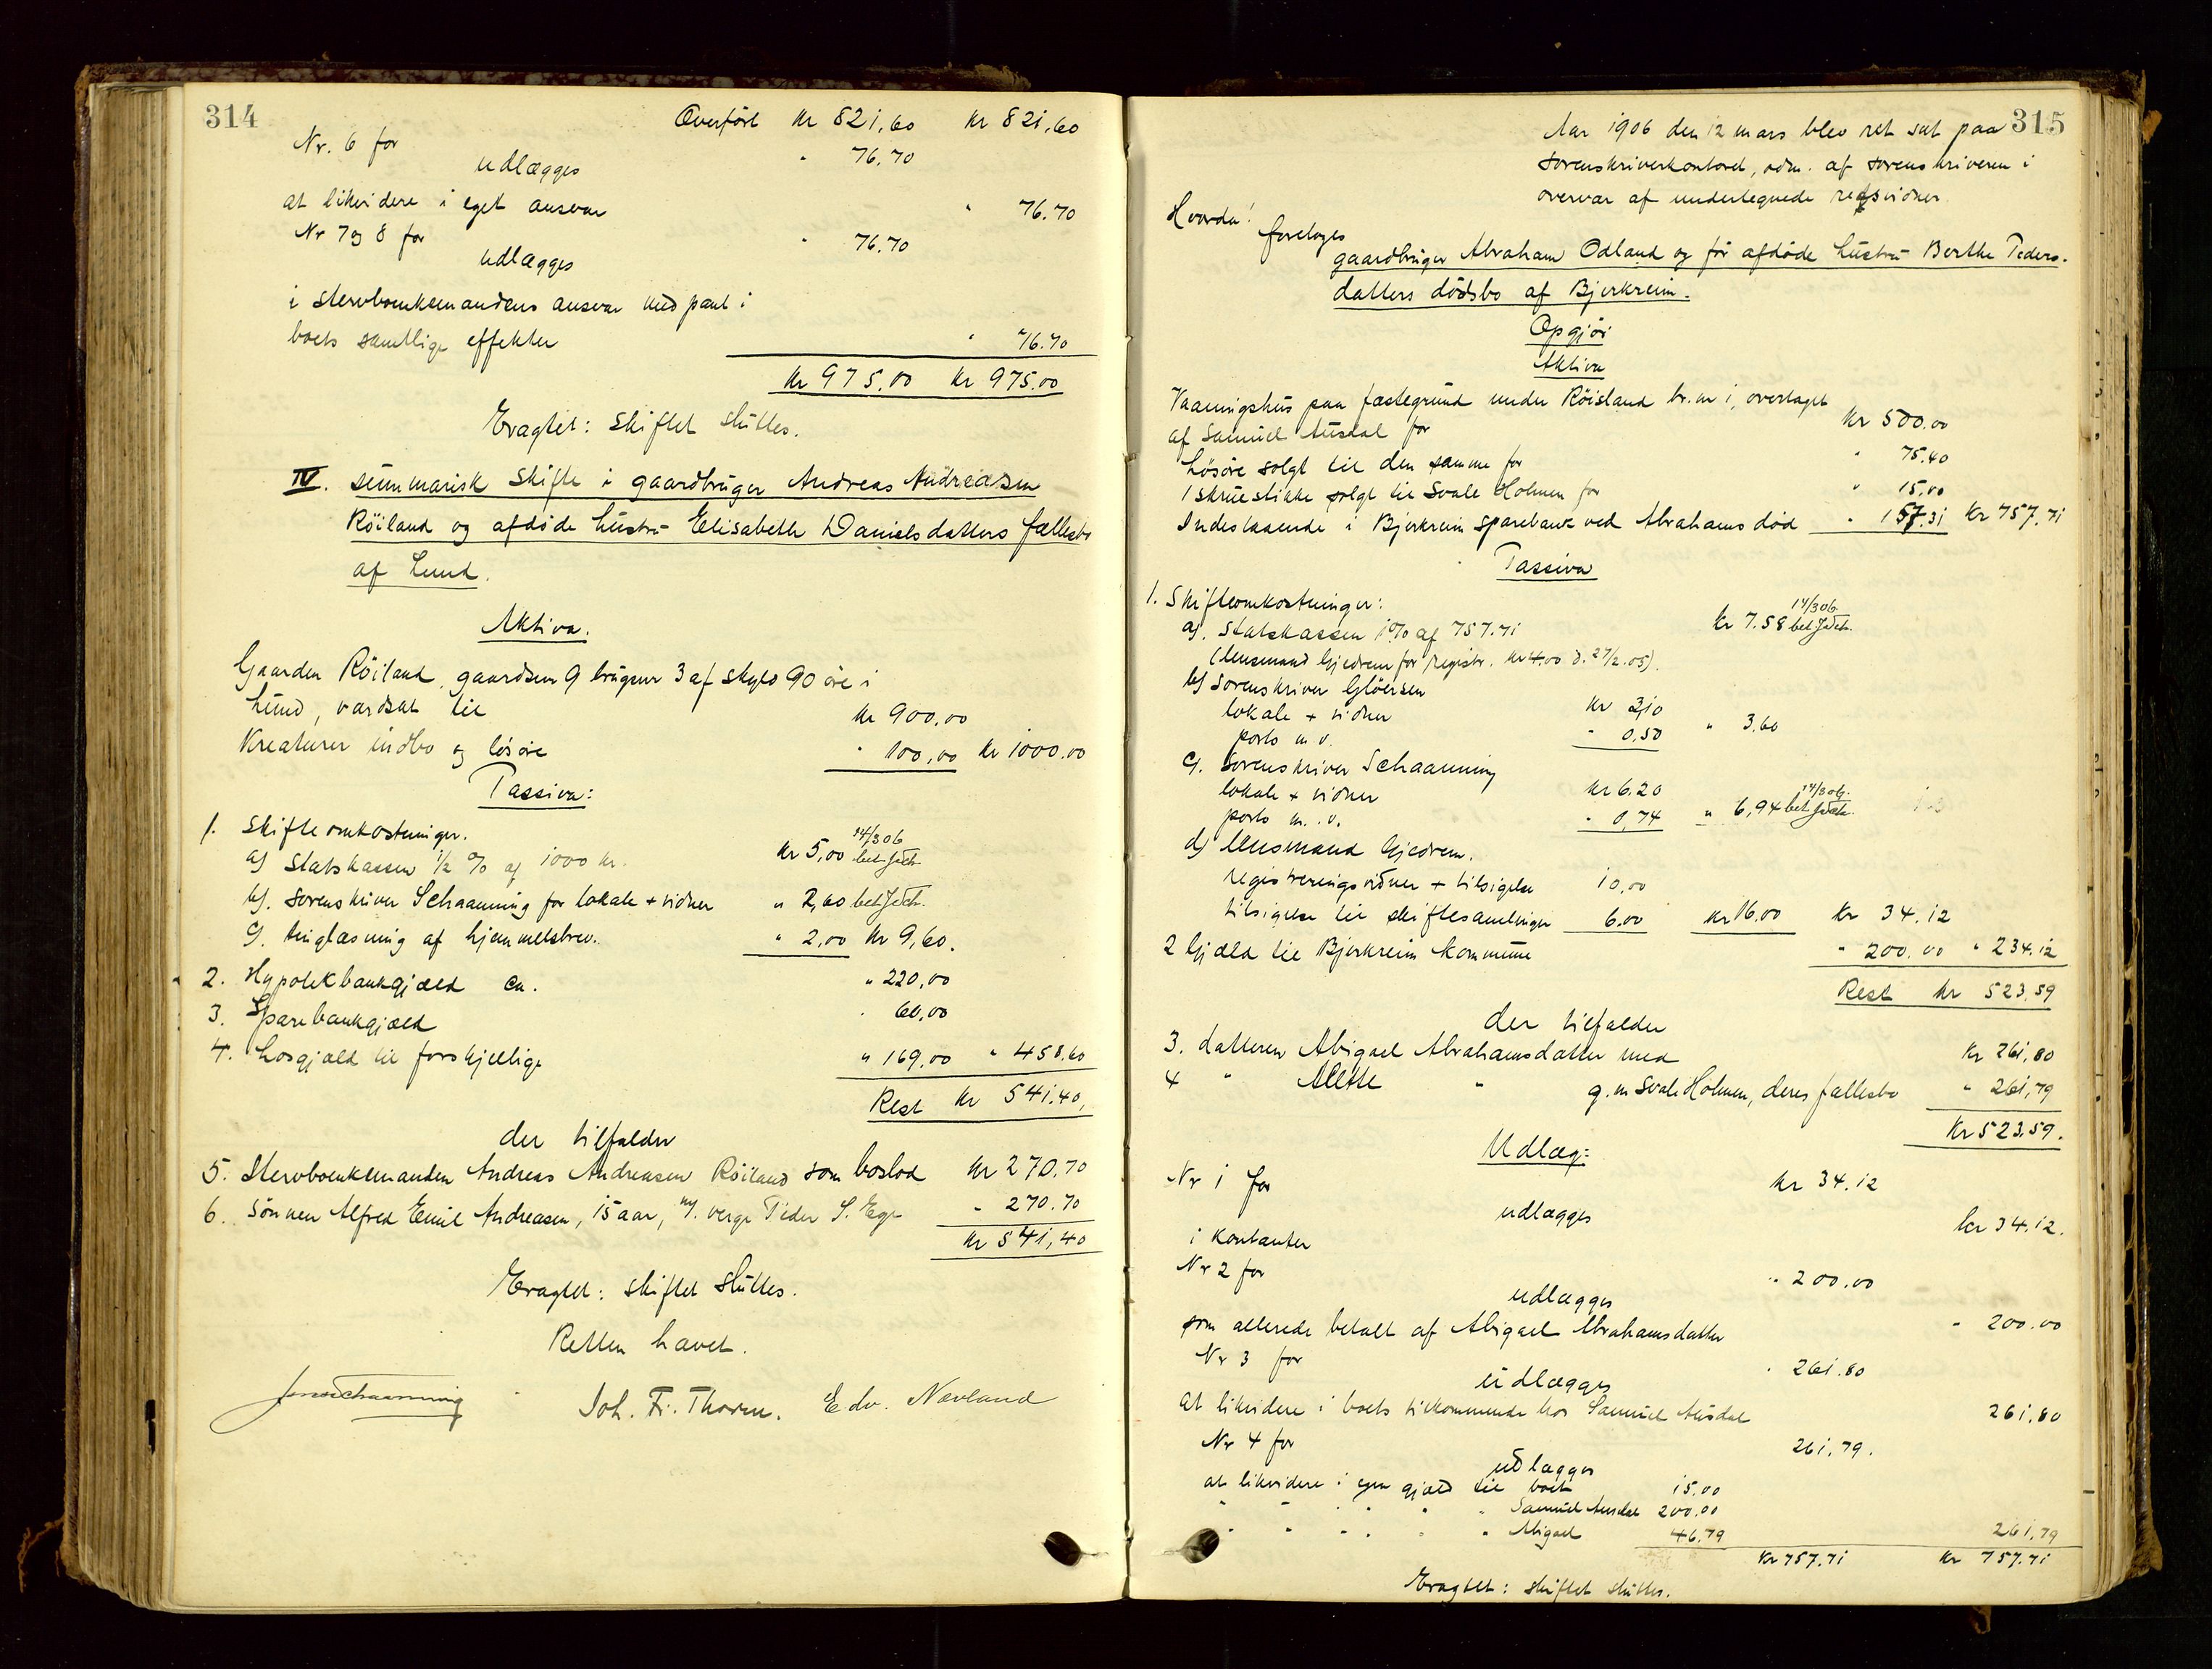 314
Overført Kr 821,60 Kr 821,60
Nr. 6 for " 76.70
udlægges
at likvidere i eget ansvar " 76.70
Nr 7 og 8 for " 76.70
udlægges
i stervboenkemandens ansvar med pant i
boets samtlige effekter " 76.70
Kr 975.00 Kr 975.00
Eragtet: Skiftet sluttes.
IV. summarisk skifte i gaardbruger Andreas Andreasen
Röiland og afdöde hustru Elisabeth Danielsdatters fællesbo
af Lund.
Aktiva.
Gaarden Röiland, gaardsnr 9 brugsnr 3 af skyld 90 öre i
Lund, værdsat til Kr 900,00
Kreaturer indbo og lösöre " 100,00 Kr 1000.00
Passiva:
1. Skifteomkostninger.
a) Statskassen 1/2 % af 1000 kr. Kr 5,00 14/3 06 bet JSch.
b). Sorenskriver Schaanning for lokale + vidner " 2,60 bet JSch.
c). tinglæsning af hjemmelsbrev. " 2,00 Kr 9,60.
2. Hypotekbankgjæld ca. " 220,00
3. Sparebankgjæld " 60,00
4. Løsgjæld til forskjellige " 169,00 " 458,60
Rest Kr 541.40,
der tilfalder
5. Stervboenkemanden Andreas Andreasen Röiland som boslod Kr 270.70
6. Sönnen Alfred Emil Andreasen, 15 aar, m/. verge Peder S. Ege " 270.70
Kr 541,40
Eragtet: skiftet sluttes.
Retten hævet.
Jens Schaanning Joh. Fr. Thorsen. Edv. Nævland
315
Aar 1906 den 12 mars blev ret sat paa
sorenskriverkontoret, adm. af sorenskriveren i
overvær af undertegnede retsvidner.
Hvorda!
foretoges
gaardbruger Abraham Odland og før afdöde hustru Berthe Peders-
datters dödsbo af Bjerkreim.
Opgjör
Aktiva
Vaaningshus paa fæstegrund under Röisland br. nr 1, overtaget
af Samuel Ausdal for Kr 500.00
Lösöre solgt til den samme for " 75.40
1 skruestikke solgt til Svale Holmen for " 15,00
Indestaaende i Bjerkreim sparebank ved Abrahams död " 157.31 Kr 757.71
Passiva
1. Skifteomkostninger:
a). Statskassen 1% af 757.71 Kr 7.58 14/3 06. bet JSch.
(lensmand Gjedrem for registr. Kr 4.00 d. 27/2.05).
b) Sorenskriver Glöersen
lokale + vidner Kr 3,10
porto m v. " 0.50 " 3,60
c). Sorenskriver Schaanning
lokale + vidner Kr 6.20
porto m. v. " 0,74 " 6,94 14/3 06. bet JSch.
d) lensmand Gjedrem.
registreringsvidner + tilsigelse 10,00
tilsigelse til skiftesamlinger 6.00 Kr 16.00 Kr 34.12
2 Gjæld til Bjerkreim kommune " 200.00 " 234.12
Rest Kr 523,59
der tilfalder
3. datteren Abigael Abrahamsdatter med Kr 261,80
4 " Alette " g. m Svale Holmen, deres fællesbo " 261,79
Kr 523.59.
Udlæg:
Nr 1 for Kr 34.12
udlægges
i kontanter kr 34.12.
Nr 2 for " 200.00
udlægges
som allerede betalt af Abigael Abrahamsdatter " 200.00
Nr 3 for " 261.80
udlægges
at likvidere i boets tilkommende hos Samuel Ausdal 261,80
Nr 4 for 261,79.
udlægges
at likvidere i egen gjæld til boet 15.00
" " " " " Samuel Ausdal 200,00
" " " " " Abigael 46,79 261,79
Kr 757.71 Kr 757.71
Eragtet: skiftet sluttes.